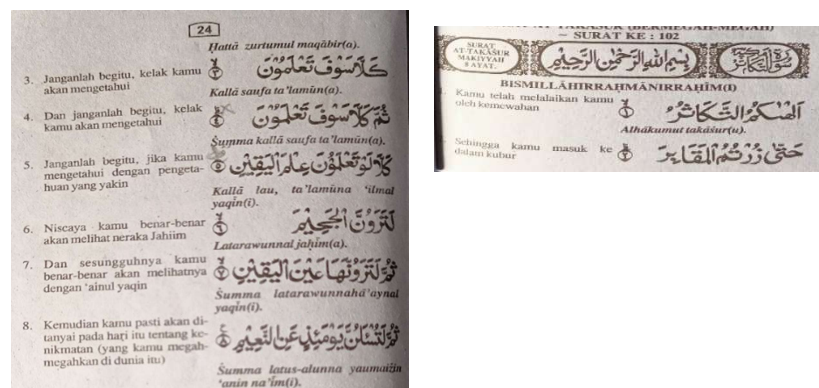 24
Ḥattā zurtumul maqābir(a).
3. Janganlah begitu, kelak kamu
akan mengetahui
كَلَّا سَوْفَ تَعْلَمُوْنَ ٣
Kallā saufa ta'lamūn(a).
4. Dan janganlah begitu, kelak
kamu akan mengetahui
ثُمَّ كَلَّا سَوْفَ تَعْلَمُوْنَ ٤
Ṡumma kallā saufa ta'lamūn(a).
5. Janganlah begitu, jika kamu
mengetahui dengan pengeta-
huan yang yakin
كَلَّا لَوْ تَعْلَمُوْنَ عِلْمَ الْيَقِيْنِ ٥
Kallā lau, ta'lamūna 'ilmal
yaqīn(i).
6. Niscaya kamu benar-benar
akan melihat neraka Jahiim
لَتَرَوُنَّ الْجَحِيْمَ ٦
Latarawunnal jaḥīm(a).
7. Dan sesungguhnya kamu
benar-benar akan melihatnya
dengan 'ainul yaqin
ثُمَّ لَتَرَوُنَّهَا عَيْنَ الْيَقِيْنِ ٧
Ṡumma latarawunnahā'aynal
yaqīn(i).
8. Kemudian kamu pasti akan di-
tanyai pada hari itu tentang ke-
nikmatan (yang kamu megah-
megahkan di dunia itu)
ثُمَّ لَتُسْئَلُنَّ يَوْمَئِذٍ عَنِ النَّعِيْمِ ٨
Ṡumma latus-alunna yaumaiżin
'anin na'īm(i).
AT-TAKĀṠUR (BERMEGAH-MEGAH)
~ SURAT KE : 102
SURAT
AT-TAKĀṠUR
MAKIYYAH
8 AYAT.
بِسْمِ اللهِ الرَّحْمٰنِ الرَّحِيْمِ
سُوْرَةُ التَّكَاثُرِ
BISMILLĀHIRRAḤMĀNIRRAḤĪM(I)
Kamu telah melalaikan kamu
oleh kemewahan
اَلْهٰىكُمُ التَّكَاثُرُ ١
Alhākumut takāṡur(u).
Sehingga kamu masuk ke
dalam kubur
حَتّٰى زُرْتُمُ الْمَقَابِرَ ٢